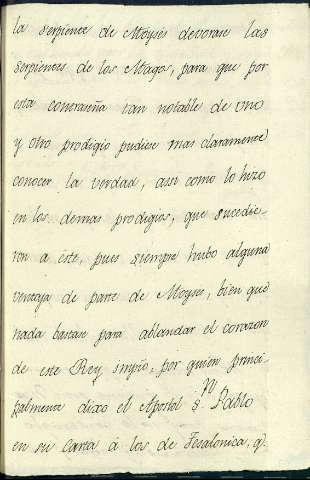 la serpiente de Moyses devorase las
serpientes de los Magos, para que por
esta contraseña tan notable de uno
y otro prodigio pudiese mas claramente
conocer la verdad, assi como lo hizo
en los demas prodigios, que sucedie-
ron a este, pues siempre hubo alguna
ventaja de parte de Moyses, bien que
nada bastase para ablandar el corazon
de este Rey impío, por quien princi-
palmente dixo el Apostol S.n Pablo
en su Carta á los de Tesalonica, q.